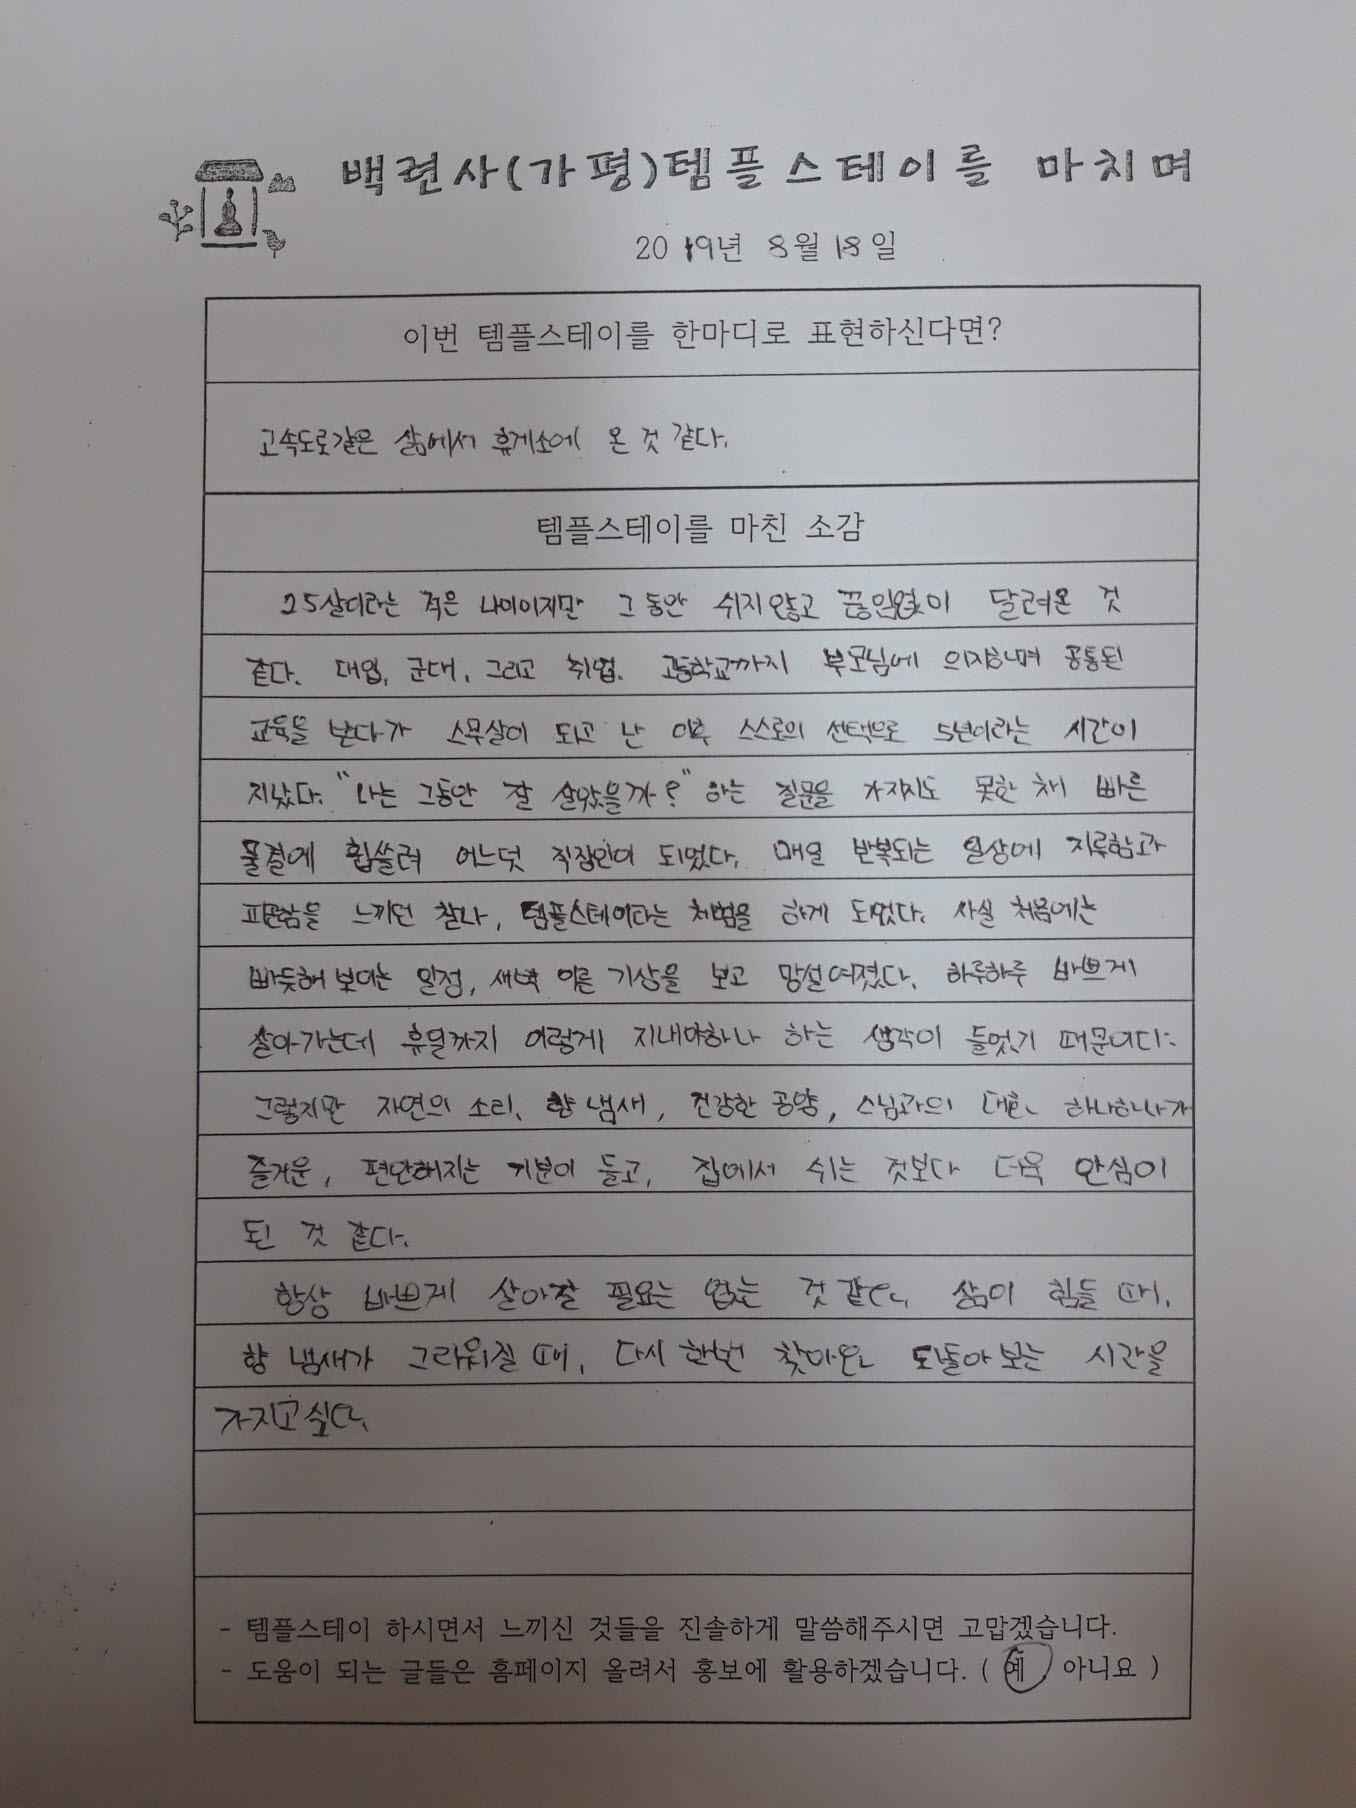 백련사(가평)템플스테이를 마치며
2019년 8월 18일
이번 템플스테이를 한마디로 표현하신다면?
고속도로같은 삶에서 휴게소에 온 것 같다.
템플스테이를 마친 소감
25살이라는 적은 나이이지만 그 동안 쉬지않고 끊임없이 달려온 것
같다. 대입, 군대, 그리고 취업. 고등학교까지 부모님에 의지하며 공통된
교육을 받다가 스무살이 되고 난 이후 스스로의 선택으로 5년이라는 시간이
지났다. "나는 그동안 잘 살았을까?" 하는 질문을 가지지도 못한 채 빠른
물결에 휩쓸려 어느덧 직장인이 되었다. 매일 반복되는 일상에 지루함과
피곤함을 느끼던 찰나, 템플스테이라는 체험을 하게 되었다. 사실 처음에는
빠듯해 보이는 일정, 새벽 이른 기상을 보고 망설여졌다. 하루하루 바쁘게
살아가는데 휴일까지 이렇게 지내야하나 하는 생각이 들었기 때문이다.
그렇지만 자연의 소리, 향 냄새, 건강한 공양, 스님과의 대화, 하나하나가
즐거운, 편안해지는 기분이 들고, 집에서 쉬는 것보다 더욱 안심이
된 것 같다.
항상 바쁘게 살아갈 필요는 없는 것 같다. 삶이 힘들 때,
향 냄새가 그리워질 때, 다시 한번 찾아와 되돌아 보는 시간을
가지고 싶다.
- 템플스테이 하시면서 느끼신 것들을 진솔하게 말씀해주시면 고맙겠습니다.
- 도움이 되는 글들은 홈페이지 올려서 홍보에 활용하겠습니다. ( 예 아니요 )